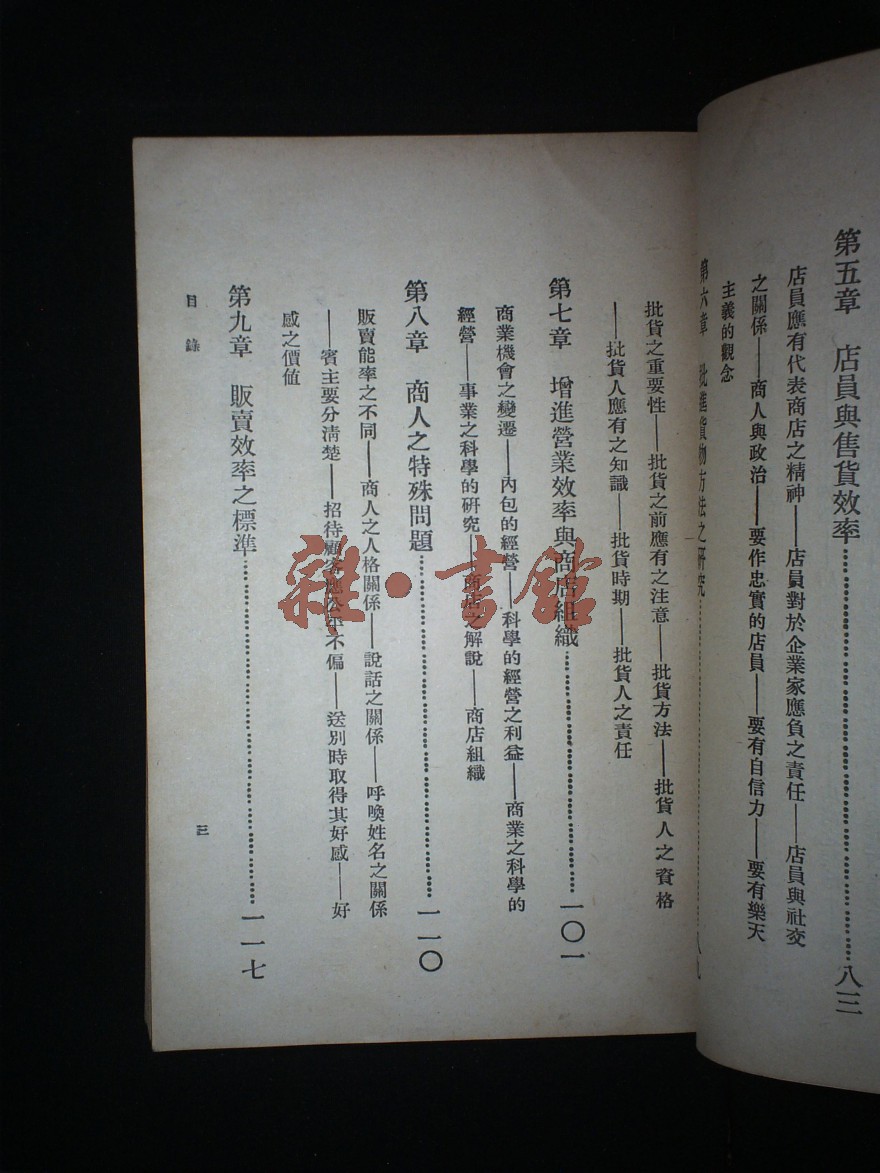 第五章　店員與售貨效率……八三
店員應有代表商店之精神——店員對於企業家應負之責任——店員與社交
之關係——商人與政治——要作忠實的店員——要有自信力——要有樂天
主義的觀念
第六章　批進貨物方法之研究……八九
批貨之重要性——批貨之前應有之注意——批貨方法——批貨人之資格
——批貨人應有之知識——批貨時期——批貨人之責任
第七章　增進營業效率與商店組織……一〇一
商業機會之變遷——內包的經營——科學的經營之利益——商業之科學的
經營——事業之科學的研究——商店之解說——商店組織
第八章　商人之特殊問題……一一〇
販賣能率之不同——商人之人格關係——說話之關係——呼喚姓名之關係
——賓主要分清楚——招待顧客應公平不偏——送別時取得其好感——好
感之價值
第九章　販賣效率之標準……一一七
目錄
三
雜·書館